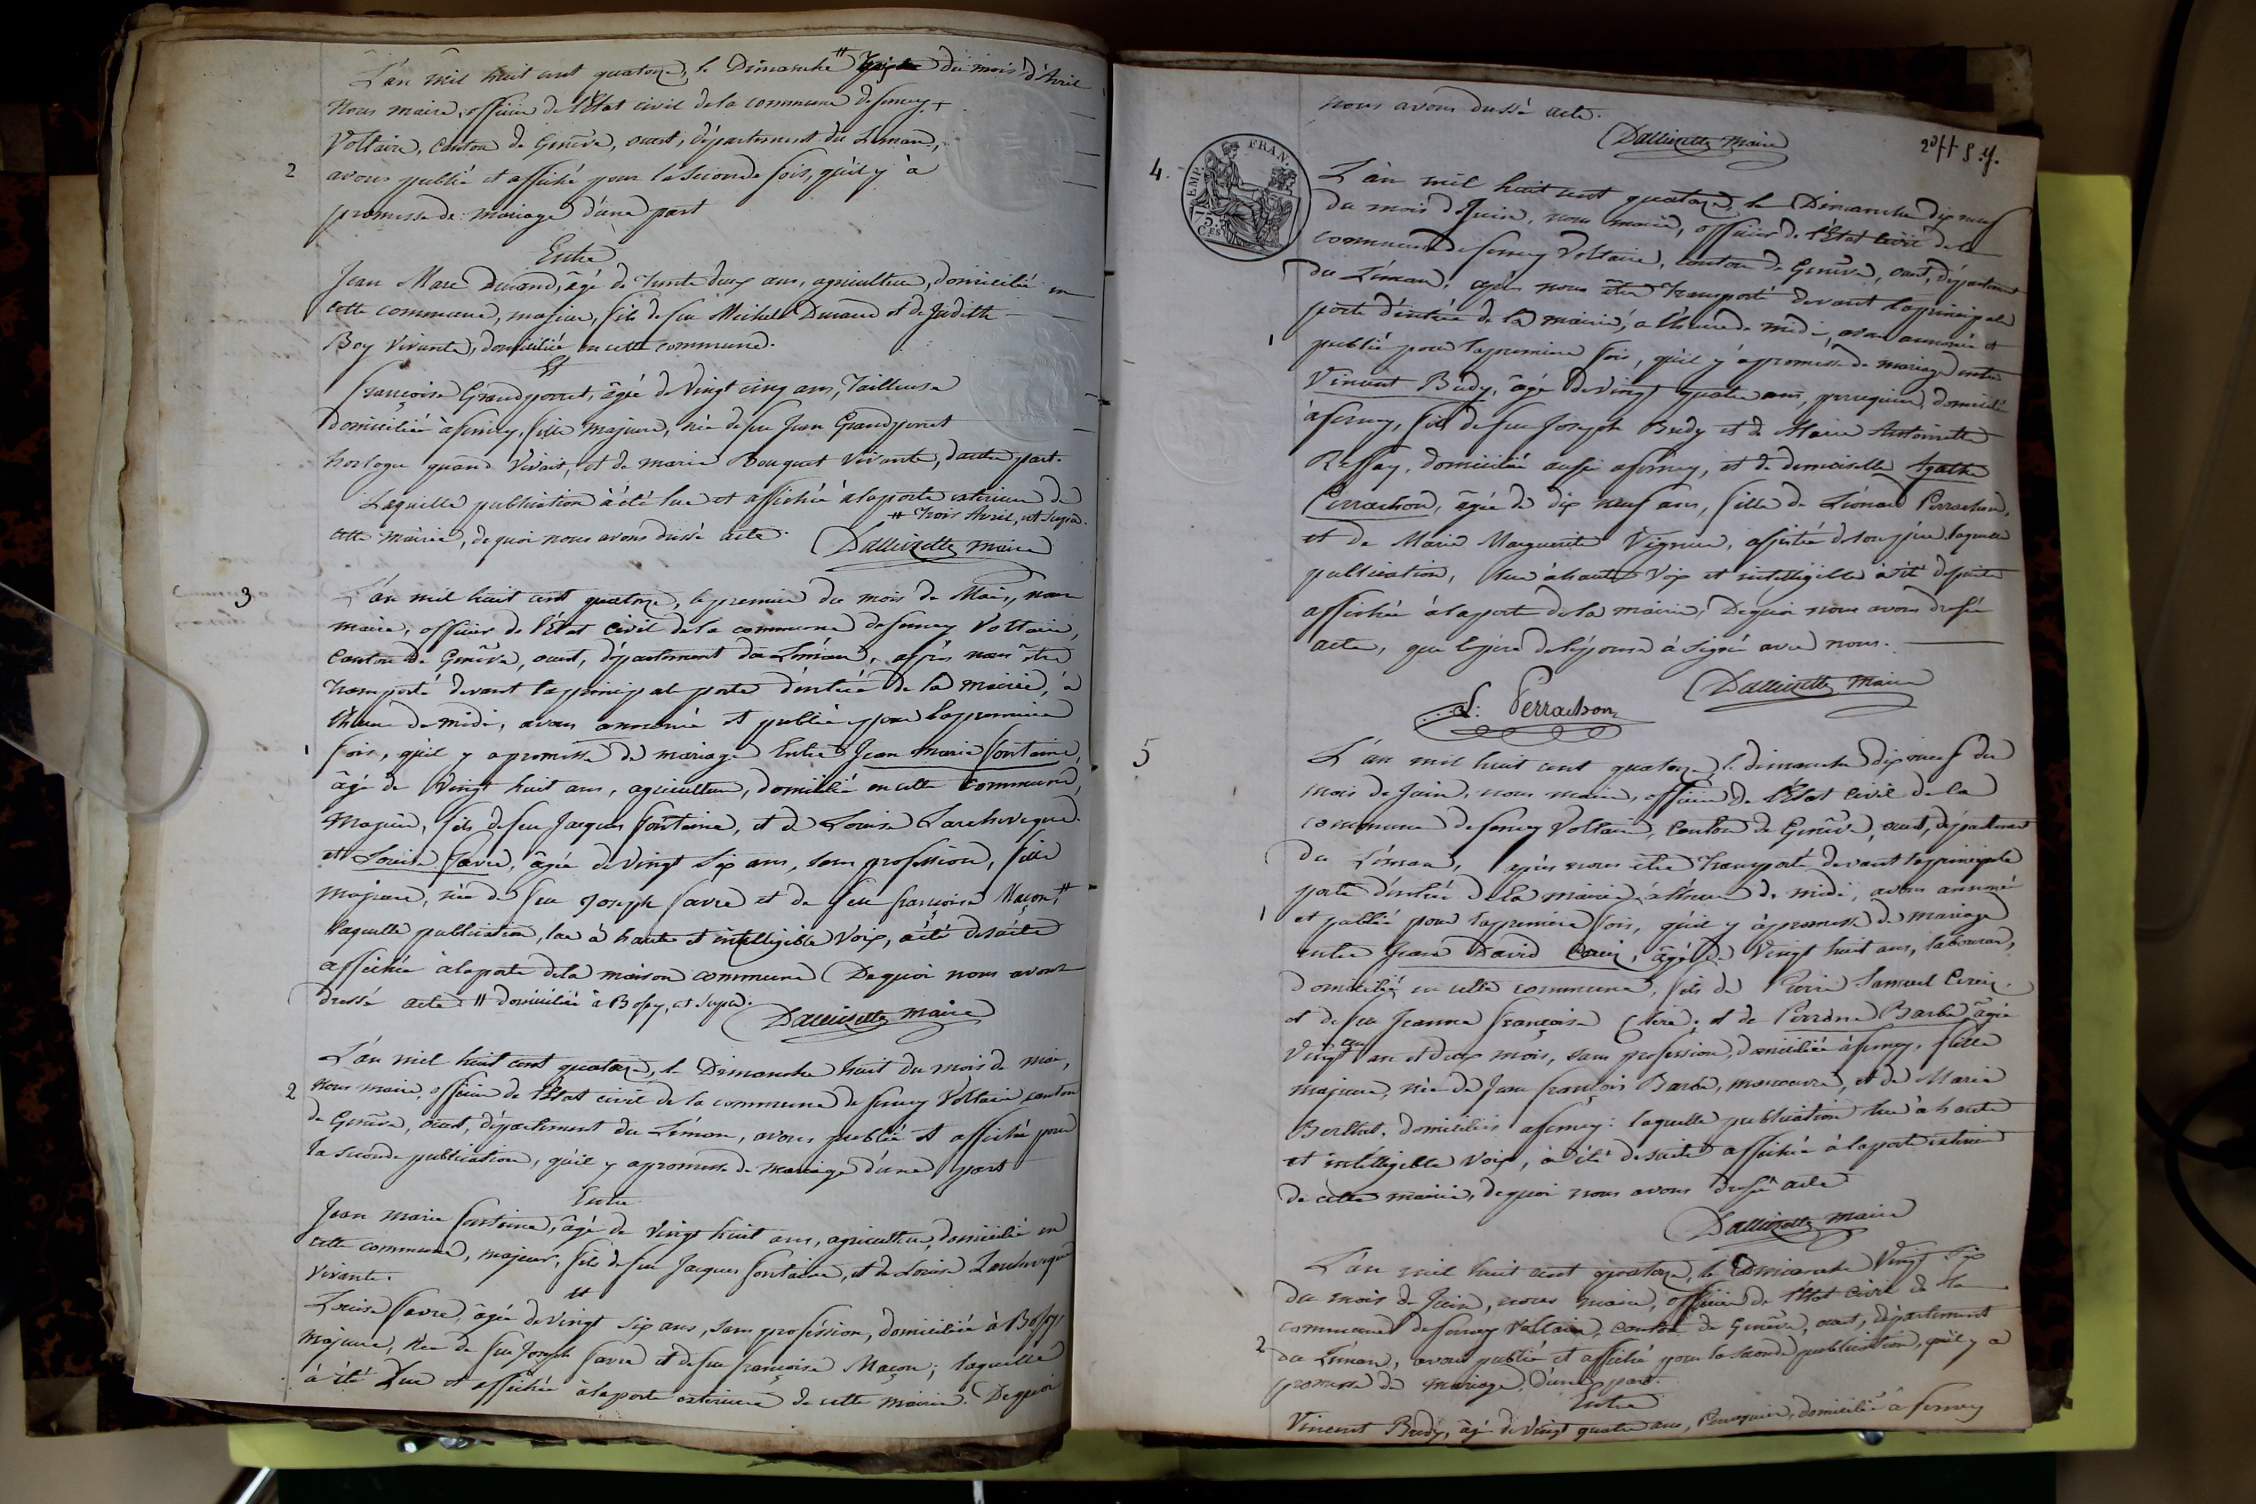 L'an mil huit cent quatorze, le Dimanche # du mois d'Avril
Nous maire, officier de l'État civil de la commune de ferney +
Voltaire, Canton de Genêve, ouest, département du Léman,
2
avons publié et affiché pour la seconde fois, qu'il y à
promesse de mariage d'une part
Entre
Jean Marc Durand, âgé de trente deux ans, agriculteur, domicilié en
cette commune, majeur, fils de feu Michel Durand et de Judith
Boy vivante, domiciliée en cette commune.
Et
françoise Grandperret, âgée de vingt cinq ans, Tailleuse
domiciliée à ferney, fille majeure, née de feu Jean Grandperret
horloger quand vivait, et de marie Bouquet vivante, d'autre part.
Laquelle publication à été lue et affichée à la porte exterieure de
# trois Avril, ut supra.
cette mairie, de quoi nous avons dressé acte.
Dallizette maire
3
L'an mil huit cent quatorze, le premier du mois de Mai, nous
maire, officier de l'État civil de la commune de ferney Voltaire,
Canton de Genêve, ouest, département du Léman, après nous être
transporté devant la principale porte d'entrée de la mairie, à
l'heure de midi, avons annoncé et publié pour la premiere
1
fois, qu'il y a promesse de mariage Entre Jean Marie fontaine,
âgé de vingt huit ans, agriculteur, domicilié en cette commune,
Majeur, fils de feu Jacques fontaine, et de Louise Larcheveque.
et Louise favre, âgée de vingt six ans, sans profession, fille
majeure, née de feu Joseph favre et de feue françoise Maçon, #
laquelle publication, lue à haute et intelligible voix, à été de suite
affichée à la porte de la maison commune De quoi nous avons
dressé acte # domiciliée à Bossy, ut supra.
Dallizette maire
L'an mil huit cent quatorze, le Dimanche huit du mois de mai,
2
nous maire, officier de l'État civil de la commune de ferney Voltaire canton
de Genêve, ouest, département du Léman, avons publié et affiché pour
la seconde publication, qu'il y a promesse de mariage d'une part
Entre
Jean marie fontaine, âgé de vingt huit ans, agriculteur, domicilié en
cette commune, majeur, fils de feu Jacques fontaine, et de Louise Larchevêque
vivante.
et
Louise favre, âgée de vingt six ans, sans profession, domiciliée à Bossy,
majeure, née de feu Joseph favre et de feue françoise Maçon; laquelle
à été lue et affichée à la porte exterieure de cette mairie. De quoi
nous avons dressé acte.
Dallizette maire
4.
EMP. FRAN.
75 CES
L'an mil huit cent quatorze, le Dimanche dix neuf
du mois de Juin, nous maire, officier de l'État civil de la
commune de ferney Voltaire, canton de Genêve, ouest, département
du Léman, après nous être transporté devant la principale
porte d'entrée de la mairie, à l'heure de midi, avons annoncé et
1
publié pour la premiere fois, qu'il y à promesse de mariage entre
Vincent Budy, âgé de vingt quatre ans, perruquier, domicilié
à ferney, fils de feu Joseph Budy et de Marie Antoinette
domiciliée aussi à ferney, et de demoiselle Agathe
Perrachon, âgée de dix neuf ans, fille de Léonard Perrachon,
et de Marie Marguerite Vignier, assistée de son père. laquelle
publication, lue à haute voix et intelligible à été de suite
affichée à la porte de la mairie, De quoi nous avons dressé
acte, que le père de l'épouse à signé avec nous.
Dallizette maire
L. Perrachon
5
L'an mil huit cent quatorze, le dimanche dix neuf du
mois de Juin, nous maire, officier de l'État civil de la
commune de ferney Voltaire, Canton de Genêve, ouest, département
du Léman, après nous être transporté devant la principale
porte d'entrée de la mairie, à l'heure de midi, avons annoncé
1
et publié pour la premiere fois, qu'il y à promesse de mariage
entre Jean David âgé de vingt huit ans, laboureur,
domicilié en cette commune, fils de Pierre Samuel
et de feue Jeanne françoise et de Perrine Barbe âgée
vingt un an et deux mois, sans profession, domiciliée à ferney, fille
majeure, née de Jean françois Barbe, manoeuvre, et de Marie
domiciliés à ferney: laquelle publication lue à haute
et intelligible voix, à été de suite affichée à la porte exterieure
de cette mairie, de quoi nous avons dressé acte
Dallizette maire
L'an mil huit cent quatorze, le Dimanche vingt six
du mois de Juin, nous maire, officier de l'État Civil de la
commune de ferney Voltaire, canton de Genêve, ouest, département
2
du Léman, avons publié et affiché pour la seconde publication, qu'il y a
promesse de mariage, d'une part.
Entre
Vincent Budy, âgé de vingt quatre ans, Perruquier, domicilié à ferney